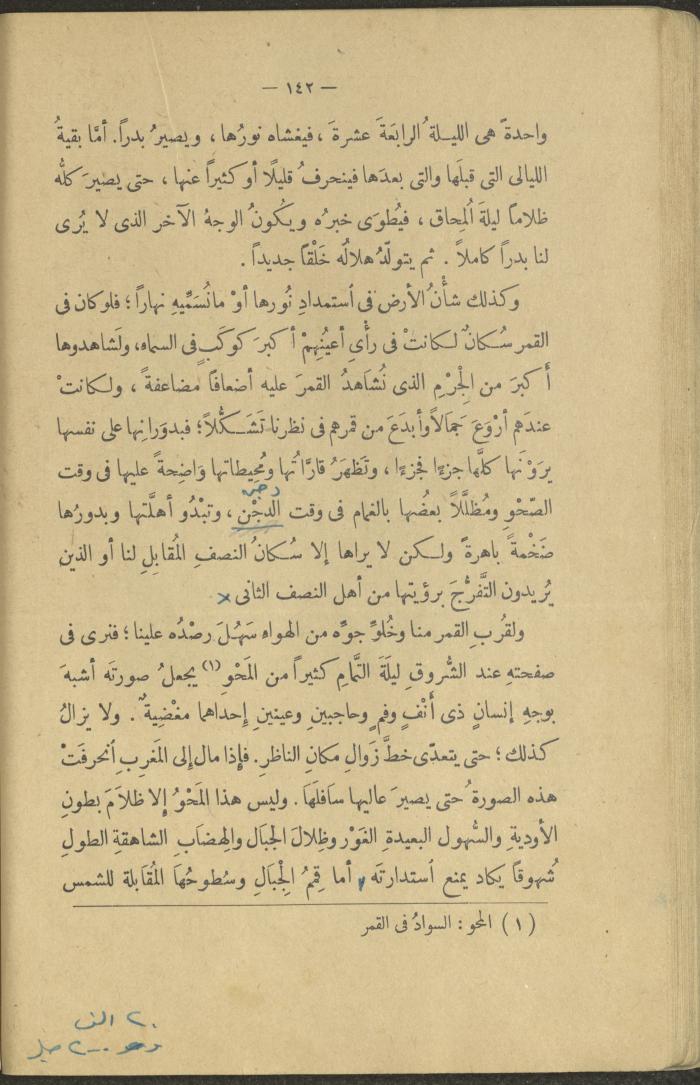 — ١٤٢ —
واحدةً هى الليلةُ الرابعَةَ عشرةَ ، فيغشاه نورُها ، ويصيرُ بدراً. أمَّا بقيةُ
الليالى التى قبلَها والتى بعدَها فينحرفُ قليلًا أو كثيراً عنها ، حتى يصيرَ كلُّه
ظلاماً ليلةَ اُلمِحاق ، فيُطوَى خبرُه ويكُونُ الوجهُ الآخر الذى لا يُرى
لنا بدراً كاملاً . ثم يتولَّدُ هلالُه خَلْقاً جديداً .
وكذلك شأْنُ الأرض فى اُستمدادِ نُورها أوْ مانُسَمِّيهِ نهاراً ؛ فلو كان فى
القمر سُكانٌ لكانتْ فى رأْىِ أعيُنِهِمْ أكبرَ كوكَبٍ فى السماء، ولَشاهدوها
أكبرَ من الِجْرِمِ الذى نُشَاهدُ القمرَ عليه أضعافاً مضاعفةً ، ولكانتْ
عندَهم أرْوَعَ جَمَالاً وأبدَعَ من قمرهم فى نظرنا تَشَكُّلاً ؛ فبدوَرانِها على نفسها
يرَوْنَها كلَّها جزءًا فجزءًا ، وتَظهَرُ قارَّاتُها ومُحِيطاتها وَاضِحةً عليها فى وقت
دجن
الصَّحْوِ ومُظلَّلاً بعضُها بالغمام فى وقت الدجْنِ ، وتبْدُو أهلَّتها وبدورُها
ضَخْمةً باهرةً ولكن لا يراها إلا سُكانُ النصفِ المُقابِلِ لنا أو الذين
يُريدون التَّفرُّجَ برؤيتها من أهل النصف الثانى x
ولقُربِ القمر منا وخُلوِّ جوِّه من الهواء سَهُلَ رصْدُه علينا ؛ فنرى فى
صفحتهِ عند الشُّروقِ ليلَةَ التَّمامِ كثيراً من المَحْوِ (١) يجعلُ صورتَه أشبهَ
بوجهِ إنسانٍ ذى أَنْفٍ وفمٍ وحاجبينِ وعينينِ إحداهما مغْضِيةٌ . ولا يزالُ
كذلك ؛ حتى يتعدّى خطَّ زَوالِ مكانِ الناظرِ. فإذا مال إلى المَغربِ اُنحرفَتْ
هذه الصورةُ حتى يصيرَ عاليها سَافلَهَا . وليس هذا المَحْوُ إلا ظلاَمَ بطونِ
الأوديةِ والسُّهول البعيدةِ الغَوْر وظِلالَ الجبَال والهضَابِ الشاهقةِ الطولِ
شُهوقاً يكاد يمنع اُستدارتَه ، أما قِممُ الْجِبالِ وسُطوحُهَا المُقابلة للشمس
(١) المحو : السوادُ فى القمر
٢٠ الف